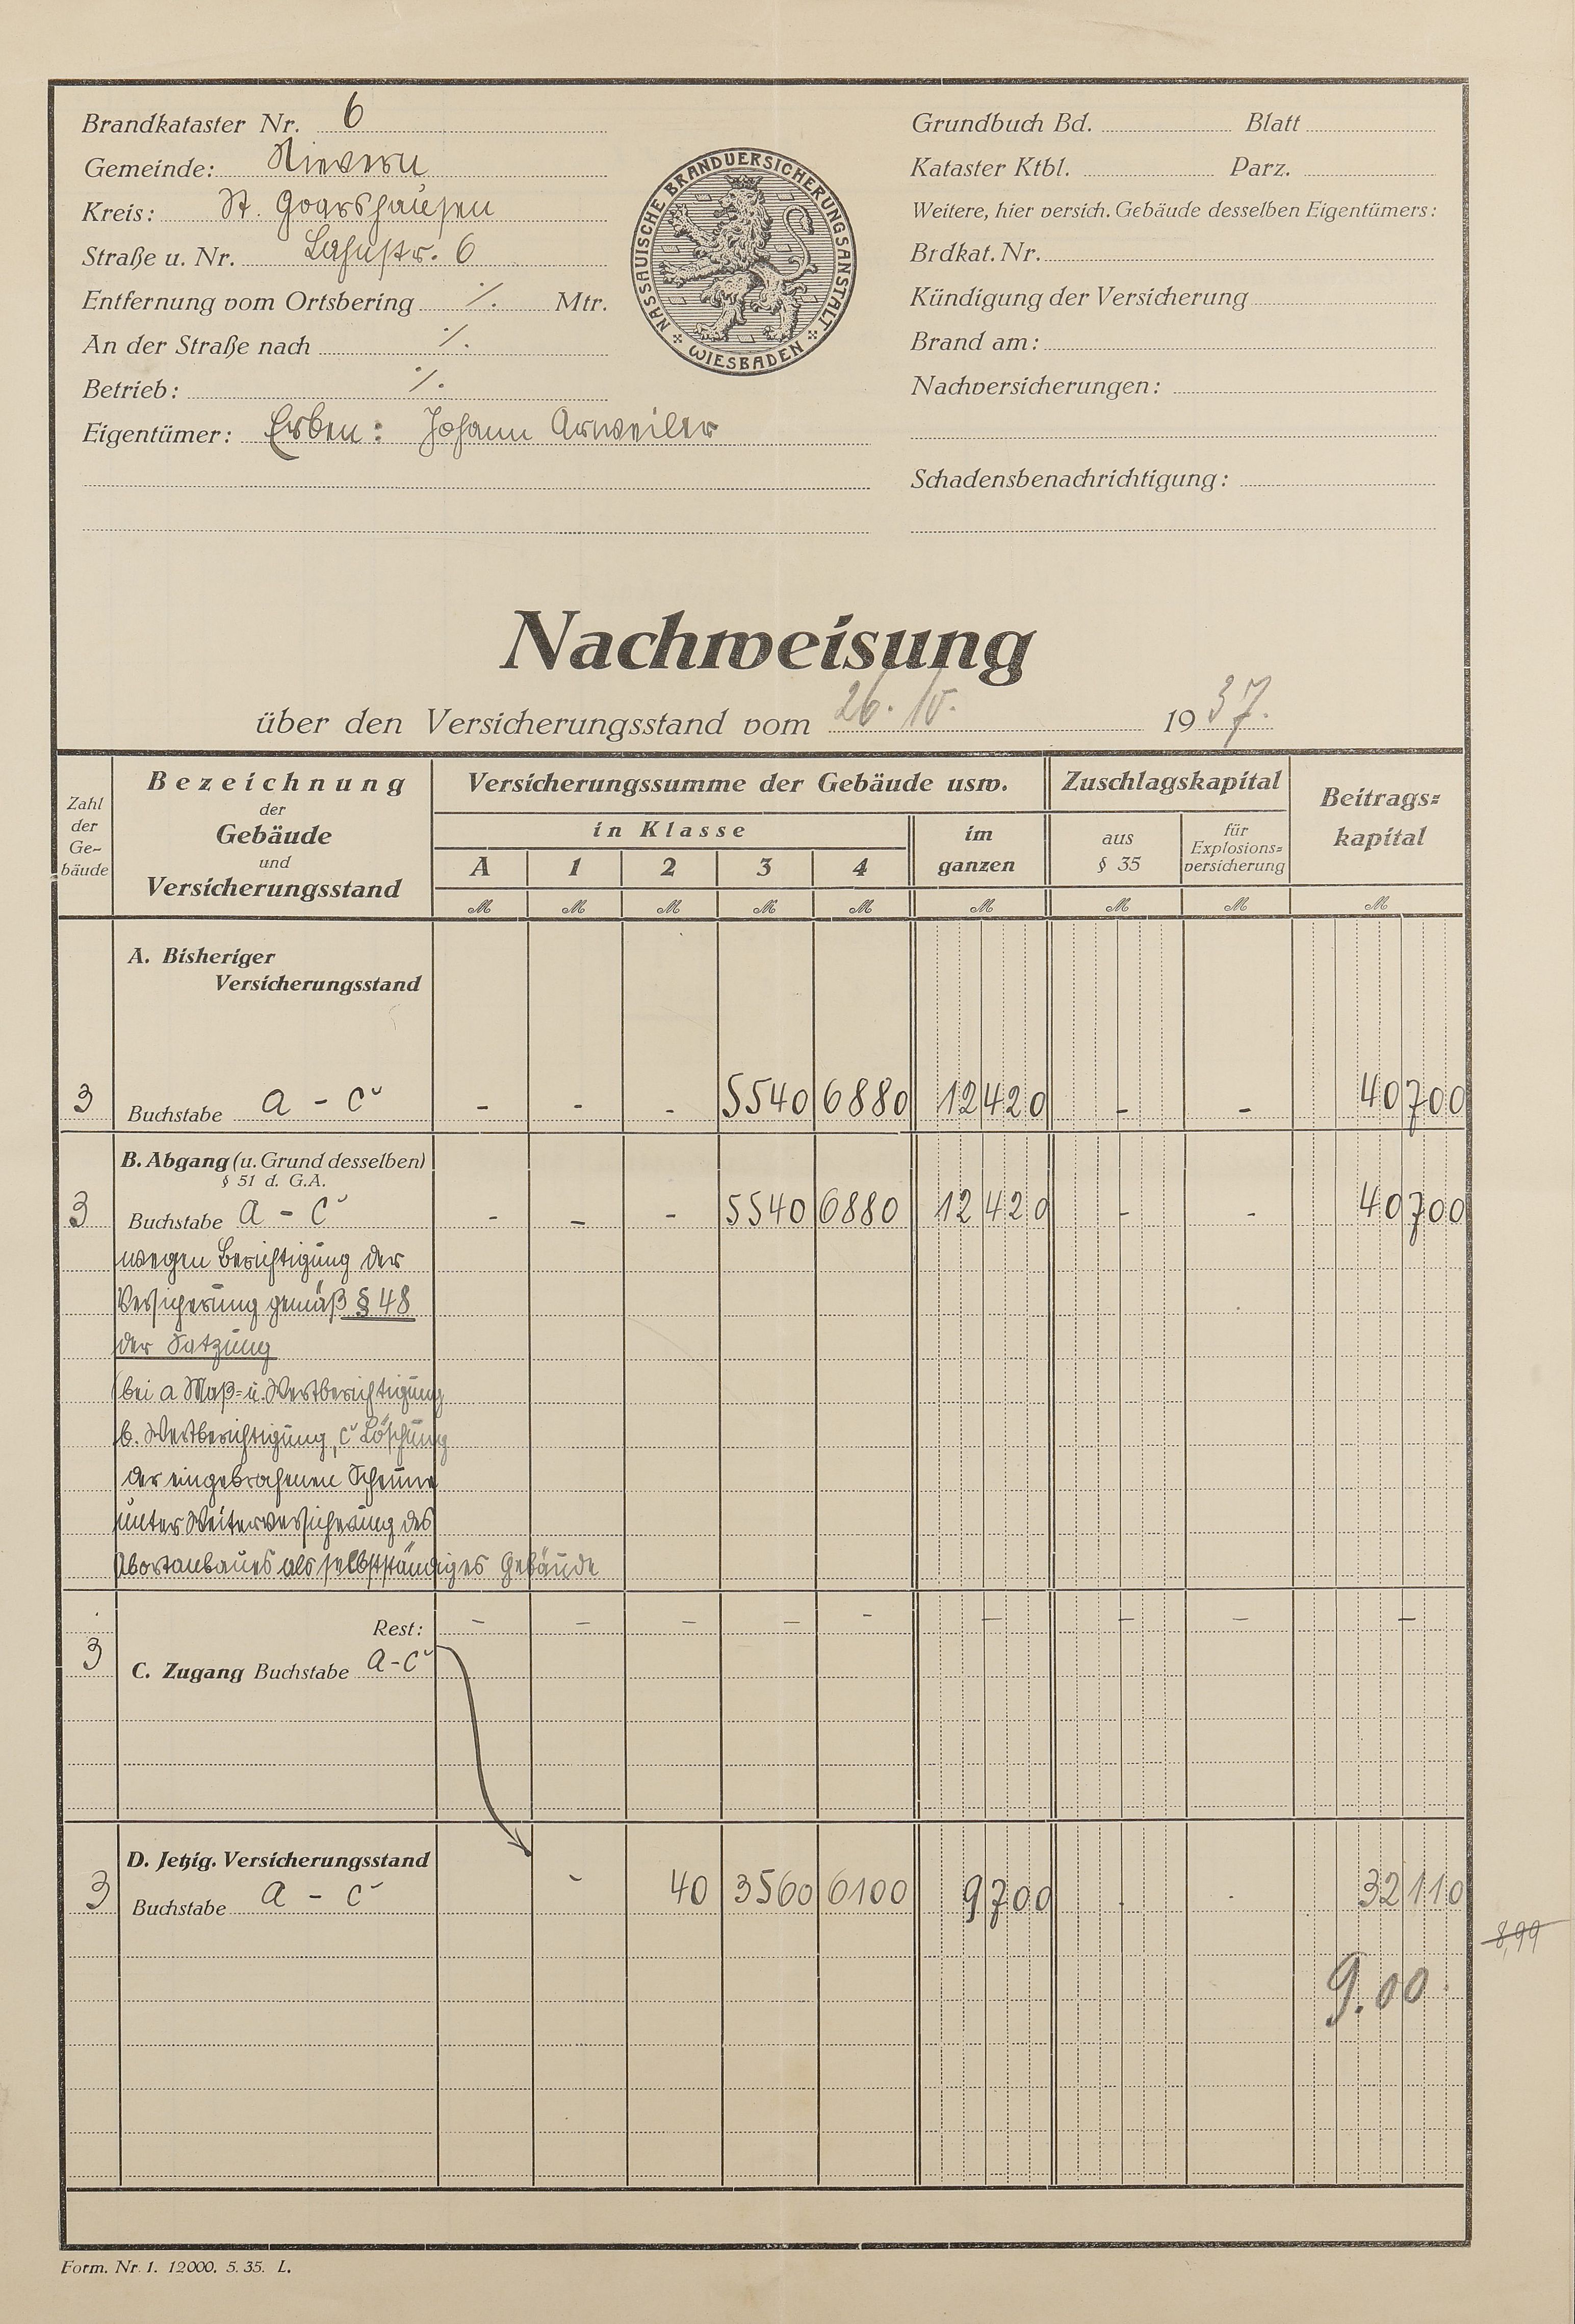 Brandkataster Nr. 6
Gemeinde: Nievern
Kreis: St. Goarshausen
Straße u. Nr. Lahnstr. 6
Entfernung vom Ortsbering ./. Mtr.
An der Straße nach ./.
Betrieb: ./.
Eigentümer: Erben: Johann Arweiler
NASSAUISCHE BRANDVERSICHERUNGSANSTALT
WIESBADEN
Grundbuch Bd. Blatt
Kataster Ktbl. Parz.
Weitere, hier versich. Gebäude desselben Eigentümers:
Brdkat. Nr.
Kündigung der Versicherung
Brand am:
Nachversicherungen:
Schadensbenachrichtigung:
Nachweisung
über den Versicherungsstand vom 26. 10. 1937.
Zahl der Ge-bäude
Bezeichnung der Gebäude und Versicherungsstand
Versicherungssumme der Gebäude usw.
in Klasse
A 1 2 3 4
im ganzen
Zuschlagskapital
aus § 35
für Explosions=versicherung
Beitrags=kapital
M M M M M M M M M
A. Bisheriger
Versicherungsstand
3 Buchstabe a - c - - - 5540 6880 12420 - - 40700
B. Abgang (u. Grund desselben)
§ 51 d. G.A.
3 Buchstabe a - c - - - 5540 6880 12420 - - 40700
wegen Berichtigung der
Versicherung gemäß § 48
der Satzung
(bei a Maß= u. Wertberichtigung
b. Wertberichtigung, c Löschung
der eingebrochenen Scheune
unter Weiterversicherung des
Abortanbaues als selbstständiges Gebäude
Rest: - - - - - - - - -
3 C. Zugang Buchstabe a-c
D. Jetzig. Versicherungsstand
3 Buchstabe a - c - 40 3560 6100 9700 - - 32110
8,99
9.00
Form. Nr. 1. 12000. 5. 35. L.